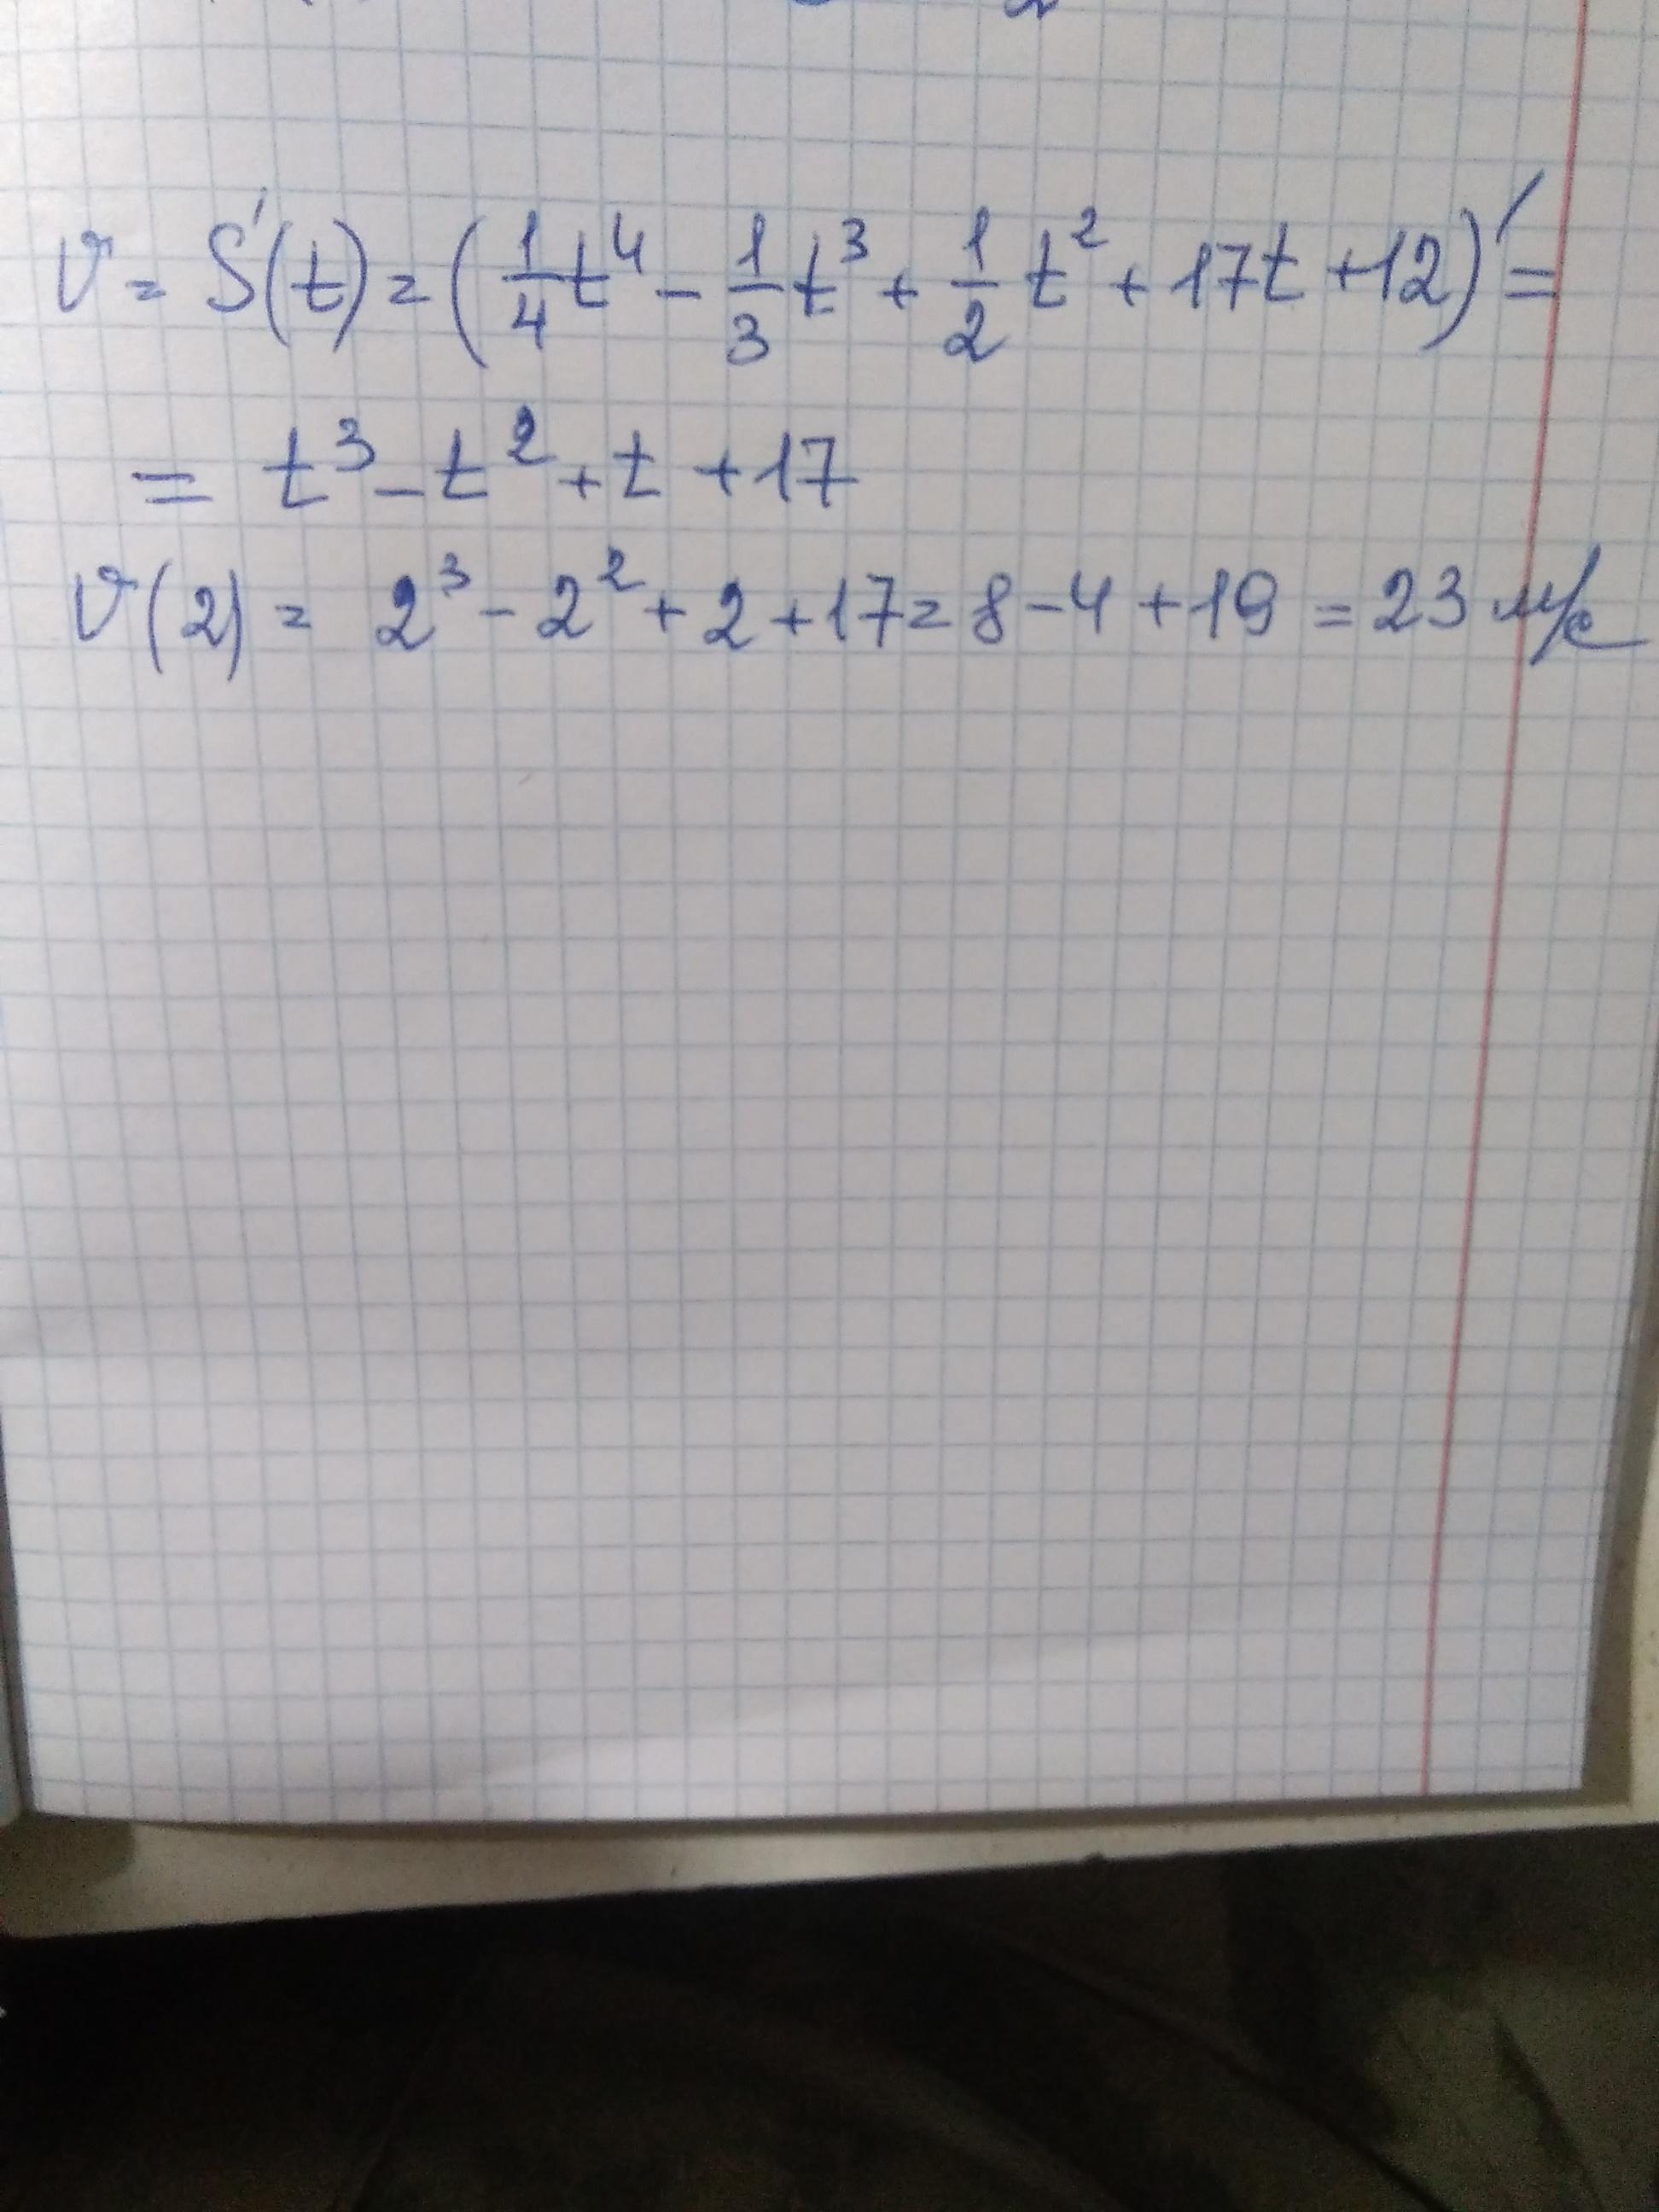 v = S'(t) = (1/4 t⁴ - 1/3 t³ + 1/2 t² + 17t + 12)' =
= t³ - t² + t + 17
v(2) = 2³ - 2² + 2 + 17 = 8 - 4 + 19 = 23 м/с